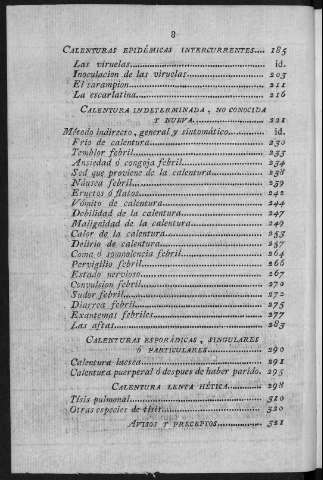 8
CALENTURAS EPIDÉMICAS INTERCURRENTES.... 185
Las viruelas.................................. id.
Inoculacion de las viruelas................... 203
El sarampion.................................. 211
La escarlatina................................ 216
CALENTURA INDETERMINADA, NO CONOCIDA
Y NUEVA.................... 221
Método indirecto, general y sintomático............ id.
Frio de calentura............................. 230
Temblor febril................................ 233
Ansiedad ó congoja febril..................... 234
Sed que proviene de la calentura.............. 238
Náusea febril................................. 239
Eructos ó flatos.............................. 242
Vómito de calentura........................... 244
Debilidad de la calentura..................... 247
Malignidad de la calentura.................... 249
Calor de la calentura......................... 253
Delirio de calentura.......................... 257
Coma ó somnolencia febril..................... 264
Pervigilio febril............................. 266
Estado nervioso............................... 267
Convulsion febril............................. 270
Sudor febril.................................. 272
Diarrea febril................................ 275
Exantemas febriles............................ 277
Las aftas..................................... 283
CALENTURAS ESPORÁDICAS, SINGULARES
Ó PARTICULARES............... 290
Calentura lactea.............................. 291
Calentura puerperal ó despues de haber parido. 295
CALENTURA LENTA HÉTICA............... 298
Tisis pulmonal................................ 310
Otras especies de tisis....................... 320
AVISOS Y PRECEPTOS................. 321